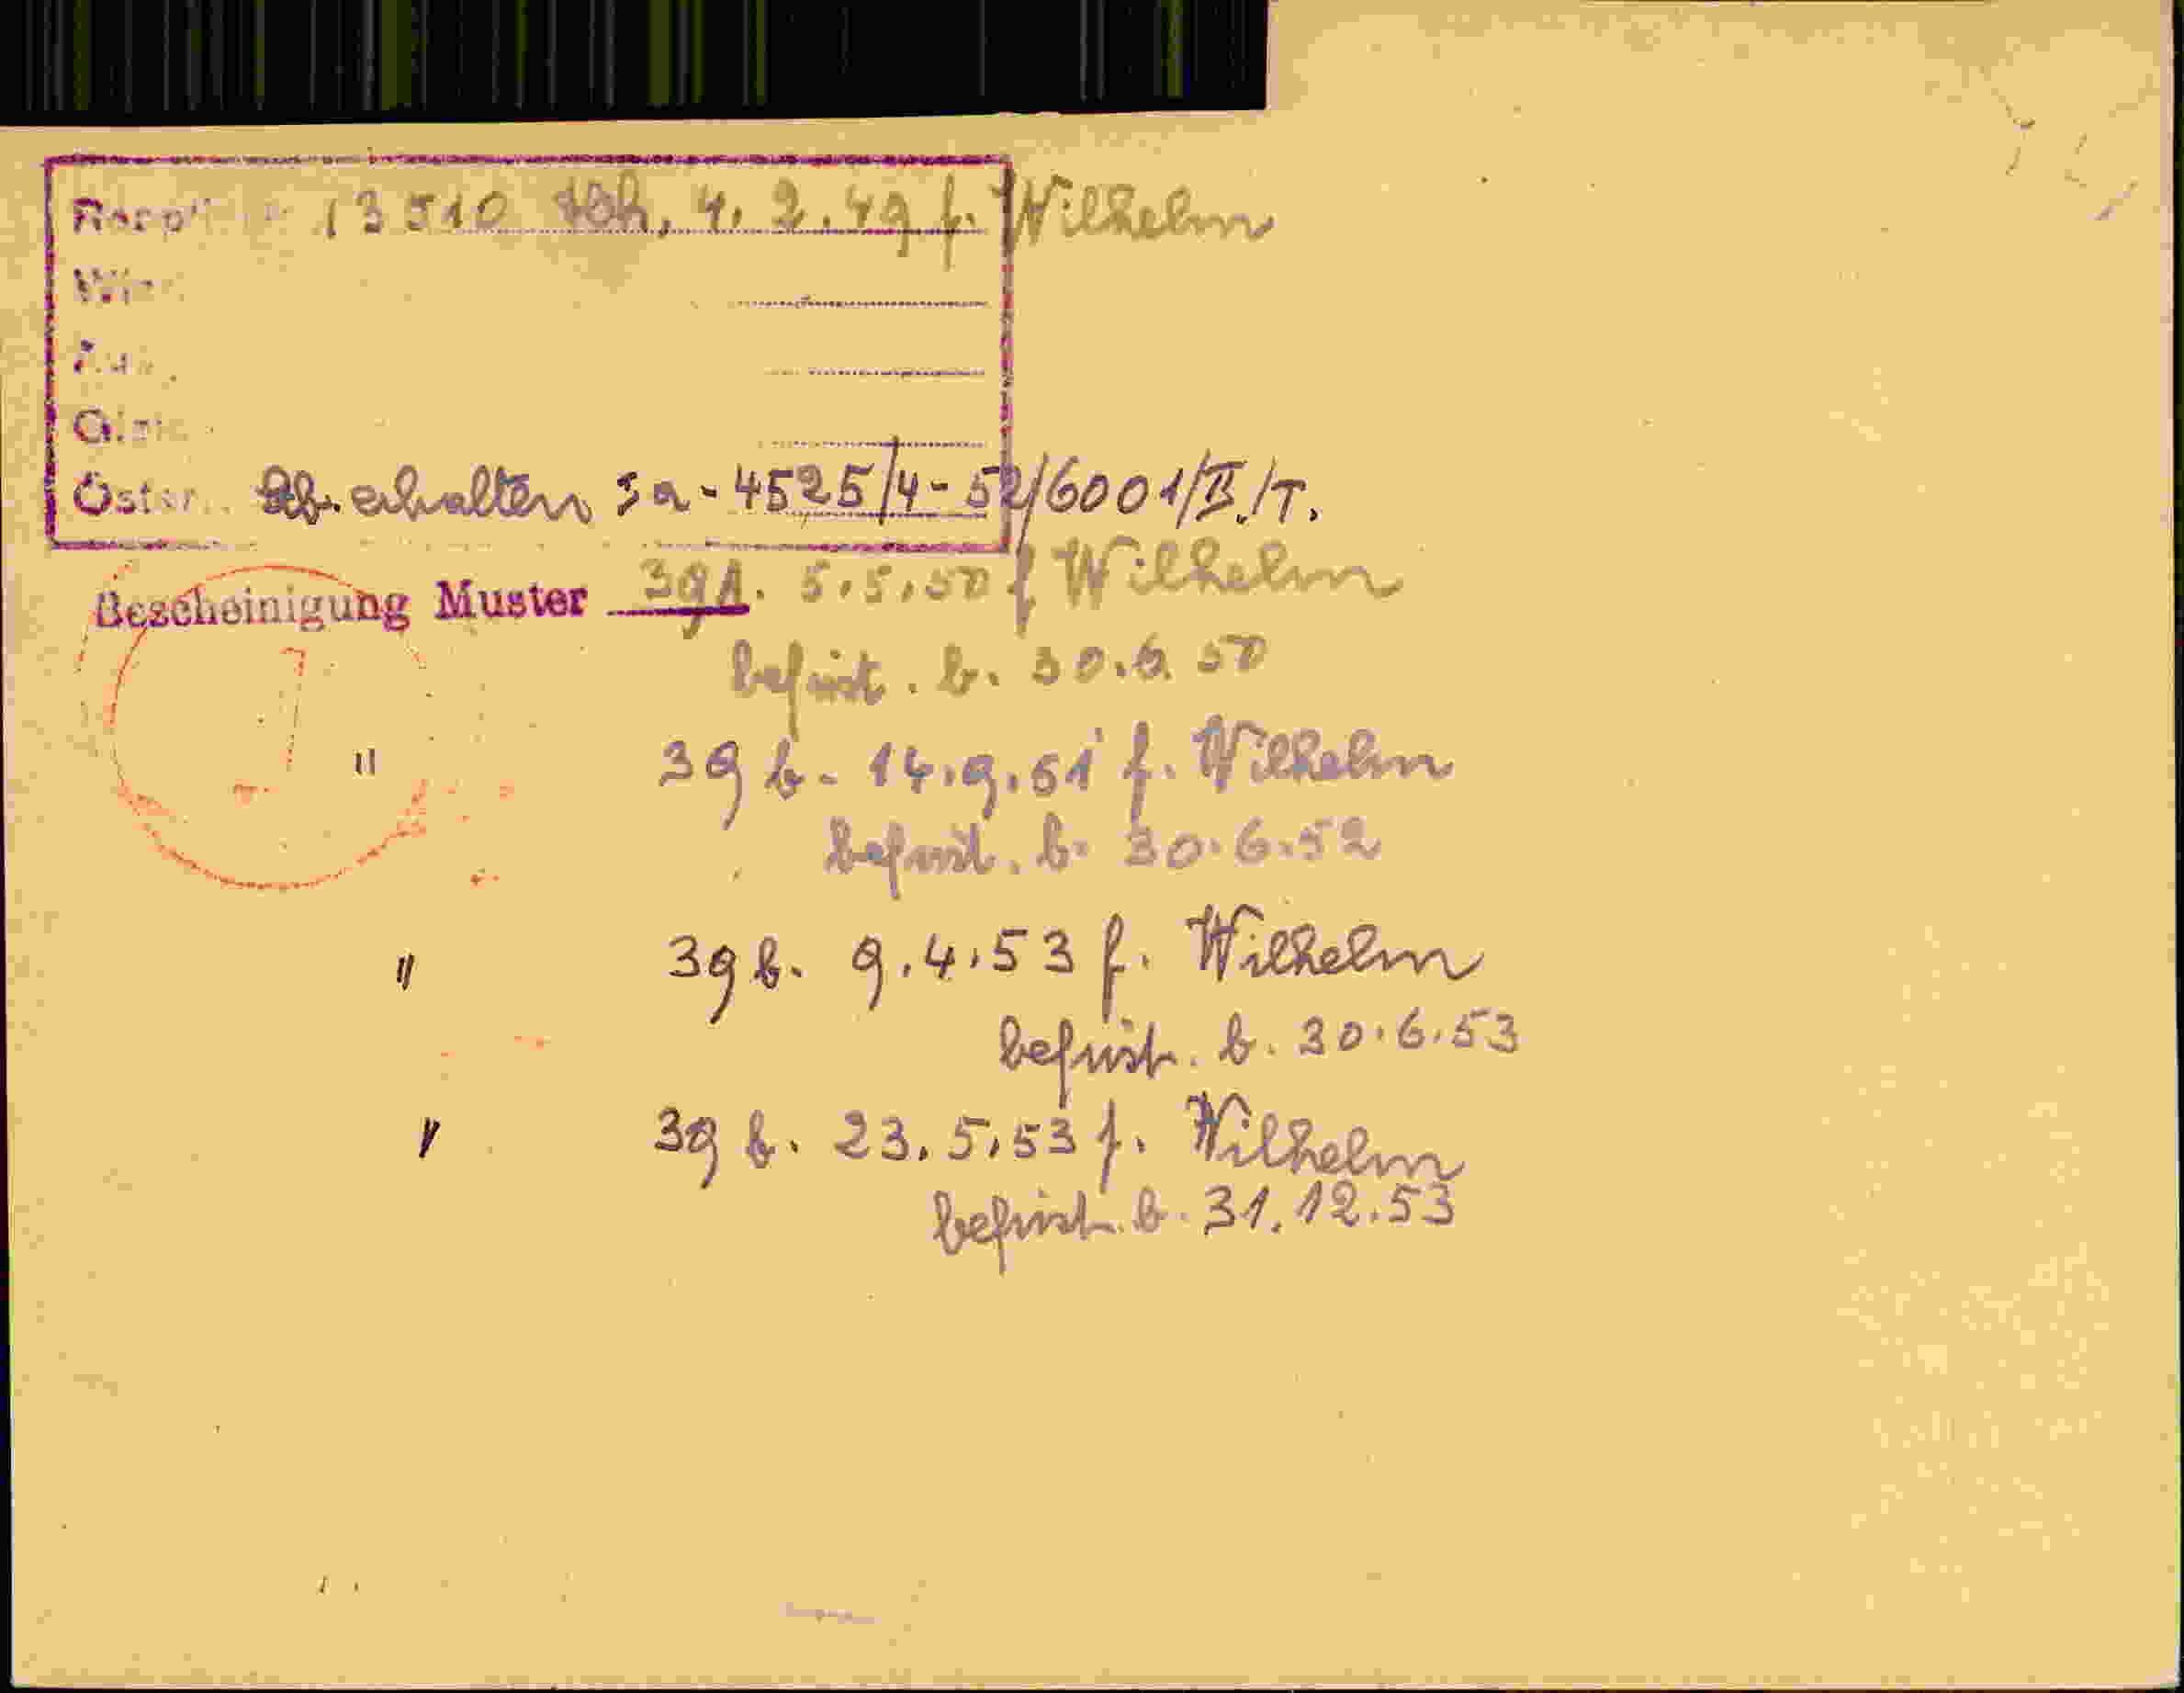 13510 4.2.49 f. Wilhelm
Österr. Stb. erhalten 3a-4525/4-52/6001/II./T.
Bescheinigung Muster 39A. 5.5.50 f Wilhelm
befrist. b. 30.6.50
" 39 b. 14.9.51 f. Wilhelm
befrist. b. 30.6.52
" 39 b. 9.4.53 f. Wilhelm
befrist. b. 30.6.53
" 39 b. 23.5.53 f. Wilhelm
befrist. b. 31.12.53